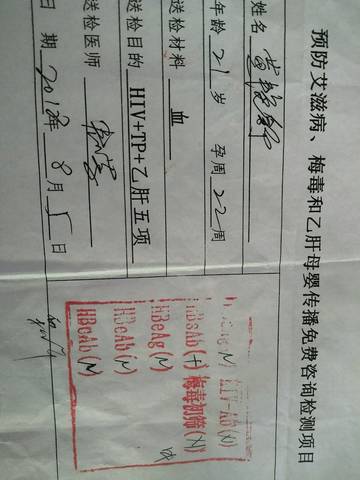 预防艾滋病、梅毒和乙肝母婴传播免费咨询检测项目
姓名
年龄 21岁 孕周 22周
送检材料 血
送检目的 HIV+TP+乙肝五项
送检医师
日期 2018年8月5日
HBsAg(N) HIV-Ab(N)
HBsAb(+) 梅毒初筛(N)
HBeAg(N)
HBeAb(N)
HBcAb(N)